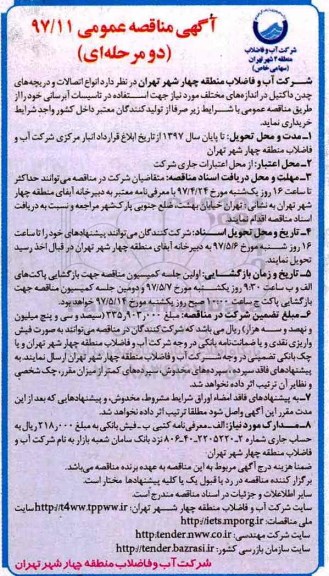 آگهی مناقصه عمومی ۹۷/۱۱
(دو مرحله‌ای)
شرکت آب و فاضلاب
منطقه ۴ شهر تهران
(سهامی خاص)
شرکت آب و فاضلاب منطقه چهار شهر تهران در نظر دارد انواع اتصالات و دریچه‌های
چدن داکتیل در اندازه‌های مختلف مورد نیاز جهت استفاده در تاسیسات آبرسانی خود را از
طریق مناقصه عمومی با شرایط زیر صرفا از تولید کنندگان معتبر داخل کشور واجد شرایط
خریداری نماید.
۱-مدت و محل تحویل: تا پایان سال ۱۳۹۷ از تاریخ ابلاغ قرارداد انبار مرکزی شرکت آب و
فاضلاب منطقه چهار شهر تهران
۲-محل اعتبار: از محل اعتبارات جاری شرکت
۳-مهلت و محل دریافت اسناد مناقصه: متقاضیان شرکت در مناقصه می‌توانند حداکثر
تا ساعت ۱۶ روز یکشنبه مورخ ۹۷/۴/۲۴ با معرفی‌نامه معتبر به دبیرخانه آبفای منطقه چهار
شهر تهران به نشانی: تهران خیابان بهشت، ضلع جنوبی پارک‌شهر مراجعه و نسبت به دریافت
اسناد مناقصه اقدام نمایند.
۴-تاریخ و محل تحویل اسناد: شرکت‌کنندگان می‌توانند پیشنهادهای خود را تا ساعت
۱۶ روز شنبه مورخ ۹۷/۵/۶ به دبیرخانه آبفای منطقه چهار شهر تهران در قبال اخذ رسید
تحویل نمایند.
۵-تاریخ و زمان بازگشایی: اولین جلسه کمیسیون مناقصه جهت بازگشایی پاکت‌های
الف و ب ساعت ۹:۳۰ روز یکشنبه مورخ ۹۷/۵/۷ و دومین جلسه کمیسیون مناقصه جهت
بازگشایی پاکت ج ساعت ۱۰:۰۰ صبح روز یکشنبه مورخ ۹۷/۵/۱۴ خواهد بود.
۶-مبلغ تضمین شرکت در مناقصه: مبلغ ۳۳۵,۹۰۳,۰۰۰ (سیصد و سی و پنج میلیون
و نهصد و سه هزار) ریال می باشد که شرکت کنندگان در مناقصه می‌توانند به صورت فیش
واریزی نقدی و یا ضمانت‌نامه بانکی در وجه شرکت آب و فاضلاب منطقه چهار شهر تهران و یا
چک بانکی تضمینی در وجه شرکت آب و فاضلاب منطقه چهار شهر تهران ارسال نمایند. به
پیشنهادهای فاقد سپرده، سپرده‌های مخدوش، سپرده‌های کمتر از میزان مقرر، چک شخصی
و نظایر آن ترتیب اثر داده نخواهد شد.
۷-به پیشنهادهای فاقد امضاء اوراق شرایط مشروط، مخدوش، و پیشنهادهایی که بعد از این
مدت مقرر این آگهی واصل شود مطلقا ترتیب اثر داده نخواهد شد.
۸-مدارک مورد نیاز: الف-معرفی‌نامه کتبی ب-فیش بانکی به مبلغ ۲۱۸,۰۰۰ ریال به
حساب جاری شماره نزد بانک سامان شعبه بازار به نام شرکت آب و
فاضلاب منطقه چهار شهر تهران:
ضمنا هزینه درج آگهی مربوط به این مناقصه به عهده برنده مناقصه می‌باشد.
برگزار کننده مناقصه در رد یا قبول یک یا کلیه پیشنهادها مختار است.
سایر اطلاعات و جزئیات در اسناد مناقصه مندرج است.
سایت شرکت آب و فاضلاب منطقه چهار شهر تهران: http://t4ww.tppww.ir سایت
ملی مناقصات: http://iets.mporg.ir
سایت شرکت مهندسی: http:tender.nww.co.ir
سایت سازمان بازرسی کشور: http://tender.bazrasi.ir
شرکت آب و فاضلاب منطقه چهار شهر تهران